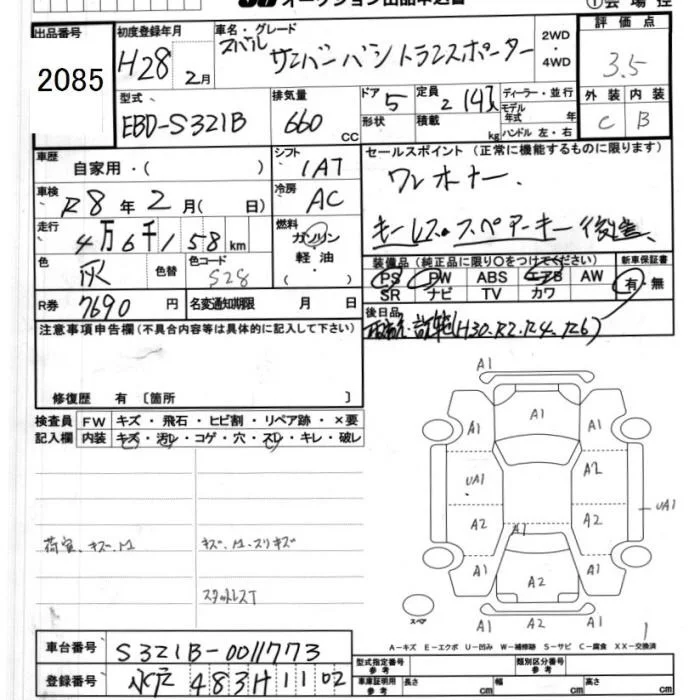 オークション出品申込書 ①会場控
出品番号 初度登録年月 車名・グレード 2WD・4WD 評価点
2085 H28 2月 スバル サンバーバン トランスポーター 3.5
型式 排気量 ドア 定員 ディーラー・並行 外装 内装
EBD-S321B 660 CC 5 2 (4)人 モデル年式 年 C B
形状 積載 kg ハンドル 左・右
車歴 自家用・( ) シフト IAT セールスポイント (正常に機能するものに限ります)
車検 R8年2月( 日) 冷房 AC ワンオーナー.
走行 4万6千158km 燃料 ガソリン 軽油 ・( ) キーレス.スペアーキー後送.
色 灰 色替 色コード S28 装備品 (純正品に限り○をつけてください) 新車保証書
PS PW ABS エアB AW 有・無
SR ナビ TV カワ
R券 7690円 名変通知期限 月 日 後日品
取説.記録(H30.R2.R4.R6)
注意事項申告欄(不具合内容等は具体的に記入して下さい)
修復歴 有 〔箇所 〕
検査員 FW キズ・飛石・ヒビ割・リペア跡・×要
記入欄 内装 キズ・汚レ・コゲ・穴・スレ・キレ・破レ
荷室.キズ.凹 キズ.凹.スリキズ
スタッドレスT
A1
A1 A1 A1
UA1 A2 UA1
A2 A1 A2
A1 A2 A1
スペア A2 A1
A-キズ E-エクボ U-凹み W-補修跡 S-サビ C-腐食 XX-交換済
車台番号 S321B-0011773 型式指定番号 参考 類別区分番号 参考
登録番号 水戸 483 H 1102 車庫証明用 参考 長さ cm 幅 cm 高さ cm